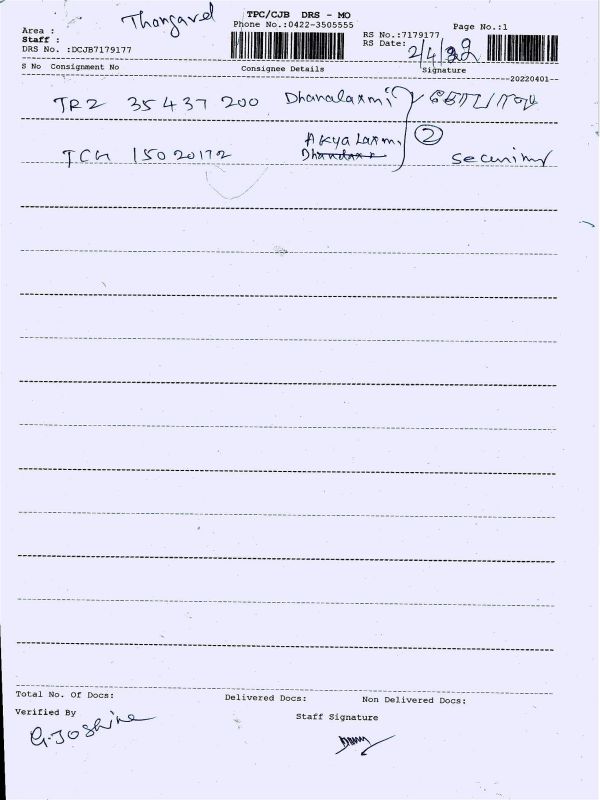 Thangavel
TPC/CJB DRS - MO
Area :
Phone No.:0422-3505555
Page No.:1
Staff :
RS No.:7179177
DRS No. :DCJB7179177
RS Date: 2/4/22
S No Consignment No Consignee Details Signature
20220401
TRZ 35437200 Dhanalaxmi
②
TCG 15020172 Akya Laxmi
Security
Total No. Of Docs: Delivered Docs: Non Delivered Docs:
Verified By Staff Signature
G.Joshine